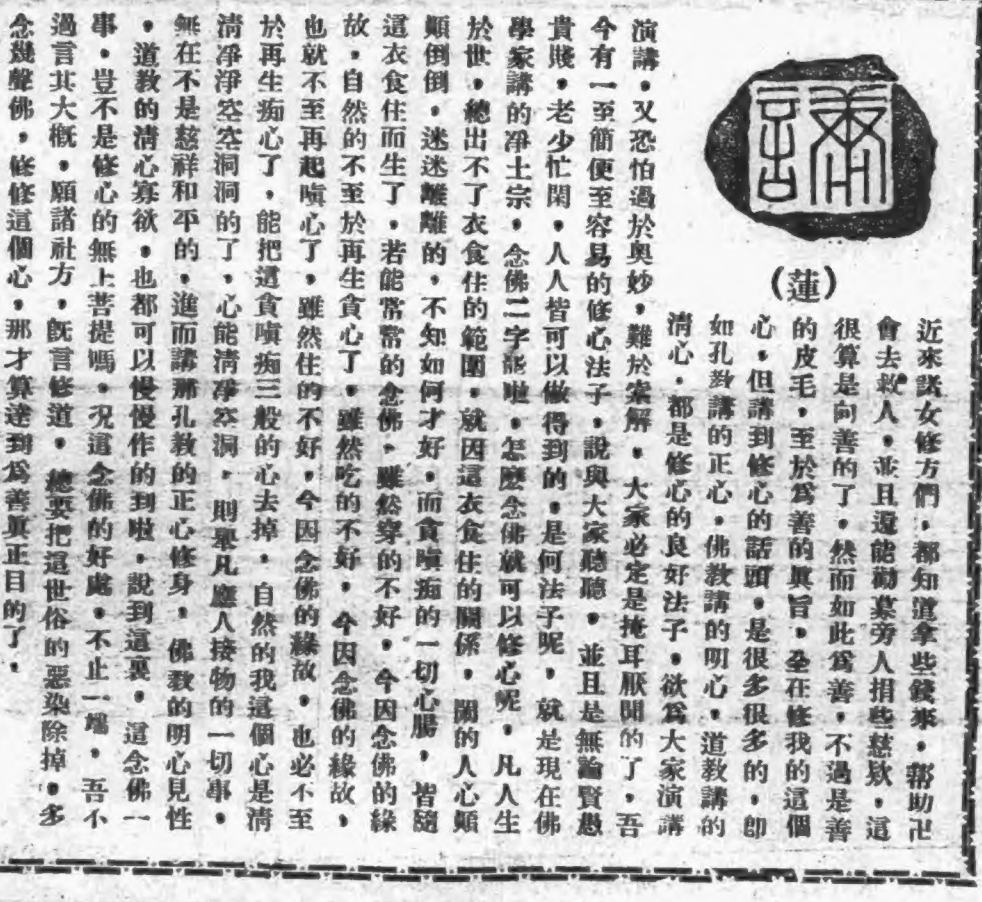 （蓮）
近來諸女修方們，都知道拿些錢來，幫助卍
會去救人，並且還能勸募旁人捐些慈欵，這
很算是向善的了，然而如此爲善，不過是善
的皮毛，至於爲善的眞旨，全在修我的這個
心，但講到修心的話頭，是很多很多的，卽
如孔敎講的正心，佛敎講的明心，道敎講的
清心，都是修心的良好法子，欲爲大家演講
演講，又恐怕過於奧妙，難於索解，大家必定是掩耳厭聞的了，吾
今有一至簡便至容易的修心法子，說與大家聽聽，並且是無論賢愚
貴賤，老少忙閑，人人皆可以做得到的，是何法子呢，就是現在佛
學家講的凈土宗，念佛二字能啦，怎麽念佛就可以修心呢，凡人生
於世，總出不了衣食住的範圍，就因這衣食住的關係，鬧的人心顚
顚倒倒，迷迷離離的，不知如何才好，而貪嗔痴的一切心腸，皆隨
這衣食住而生了，若能常常的念佛，雖然穿的不好，今因念佛的緣
故，自然的不至於再生貪心了，雖然吃的不好，今因念佛的緣故，
也就不至再起嗔心了，雖然住的不好，今因念佛的緣故，也必不至
於再生痴心了，能把這貪嗔痴三般的心去掉，自然的我這個心是清
清凈淨空空洞洞的了，心能清凈空洞，則舉凡應人接物的一切事，
無在不是慈祥和平的，進而講那孔敎的正心修身，佛敎的明心見性
，道敎的清心寡欲，也都可以慢慢作的到啦，說到這裏，這念佛一
事，豈不是修心的無上菩提嗎，况這念佛的好處，不止一端，吾不
過言其大槪，願諸社方，旣言修道，總要把這世俗的惡染除掉，多
念幾聲佛，修修這個心，那才算達到爲善眞正目的了，